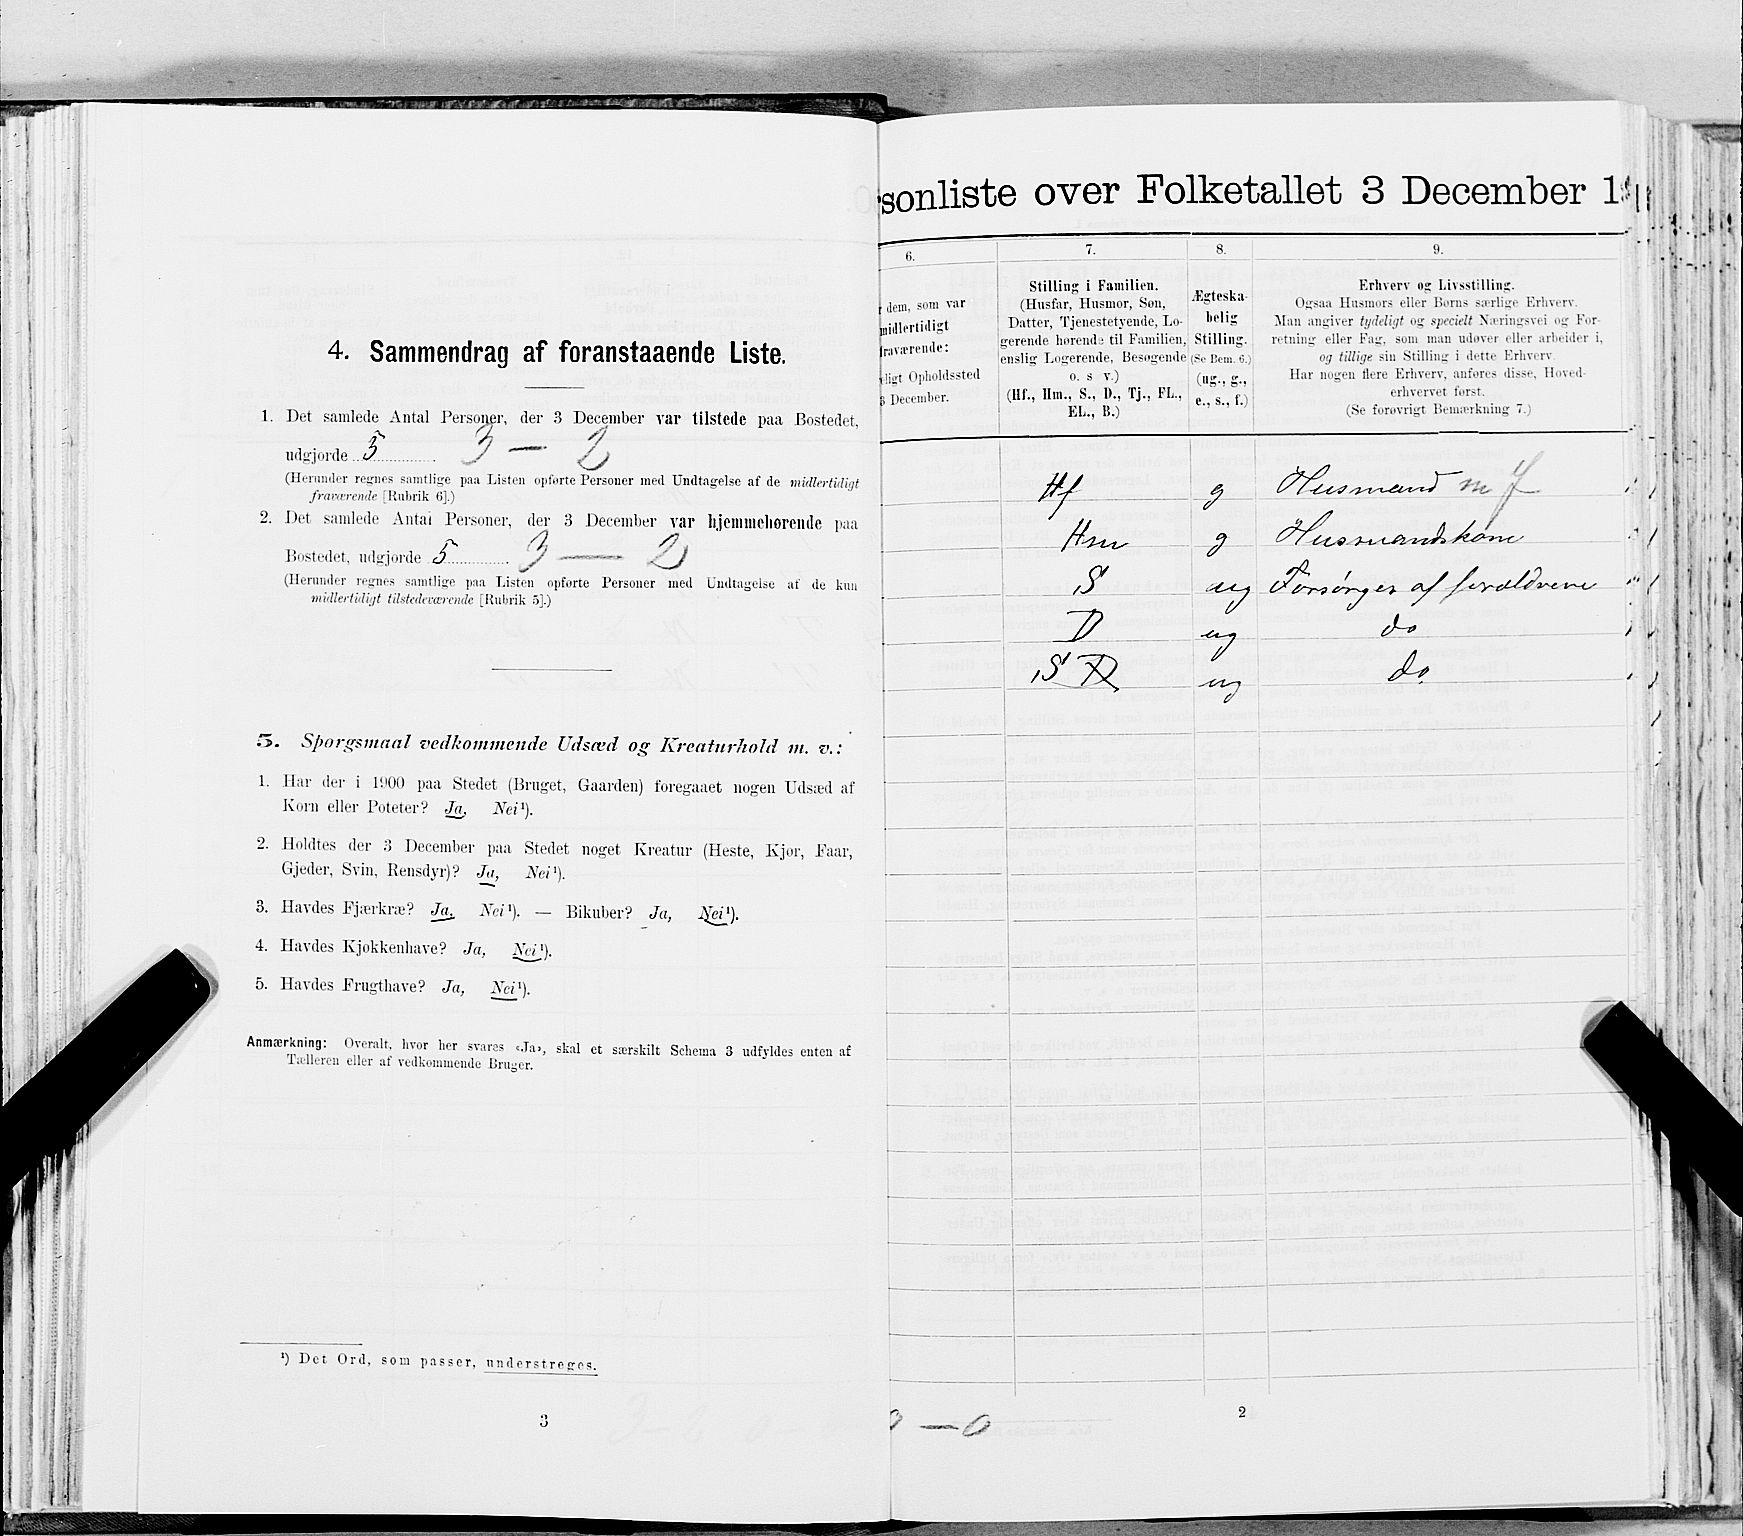 4. Sammendrag af foranstaaende Liste.
1. Det samlede Antal Personer, der 3 December var tilstede paa Bostedet,
udgjorde 5 3 — 2
(Herunder regnes samtlige paa Listen opførte Personer med Undtagelse af de midlertidigt
fraværende [Rubrik 6].)
2. Det samlede Antal Personer, der 3 December var hjemmehørende paa
Bostedet, udgjorde 5 3 — 2
(Herunder regnes samtlige paa Listen opførte Personer med Undtagelse af de kun
midlertidigt tilstedeværende [Rubrik 5].)
5. Spørgsmaal vedkommende Udsæd og Kreaturhold m. v.:
1. Har der i 1900 paa Stedet (Bruget, Gaarden) foregaaet nogen Udsæd af
Korn eller Poteter? Ja, Nei ¹).
2. Holdtes der 3 December paa Stedet noget Kreatur (Heste, Kjør, Faar,
Gjeder, Svin, Rensdyr)? Ja, Nei ¹).
3. Havdes Fjærkræ? Ja, Nei ¹). — Bikuber? Ja, Nei ¹).
4. Havdes Kjøkkenhave? Ja, Nei ¹).
5. Havdes Frugthave? Ja, Nei ¹).
Anmærkning: Overalt, hvor her svares «Ja», skal et særskilt Schema 3 udfyldes enten af
Tælleren eller af vedkommende Bruger.
¹) Det Ord, som passer, understreges.
3
rsonliste over Folketallet 3 December 1
6. 7. 8. 9.
dem, som var
midlertidigt
fraværende:
eligt Opholdssted
3 December.
Stilling i Familien.
(Husfar, Husmor, Søn,
Datter, Tjenestetyende, Lo-
gerende hørende til Familien,
enslig Logerende, Besøgende
o. s v.)
(Hf., Hm., S., D., Tj., FL.,
EL., B.)
Ægteska-
belig
Stilling.
(Se Bem. 6.)
(ug., g.,
e., s., f.)
Erhverv og Livsstilling.
Ogsaa Husmors eller Børns særlige Erhverv.
Man angiver tydeligt og specielt Næringsvei og For-
retning eller Fag, som man udøver eller arbeider i,
og tillige sin Stilling i dette Erhverv.
Har nogen flere Erhverv, anføres disse, Hoved-
erhvervet først.
(Se forøvrigt Bemærkning 7.)
Hf g Husmand m J
Hm g Husmandskone
S ug Forsørges af forældrene
D ug do
S D ug do
0 — 0
2